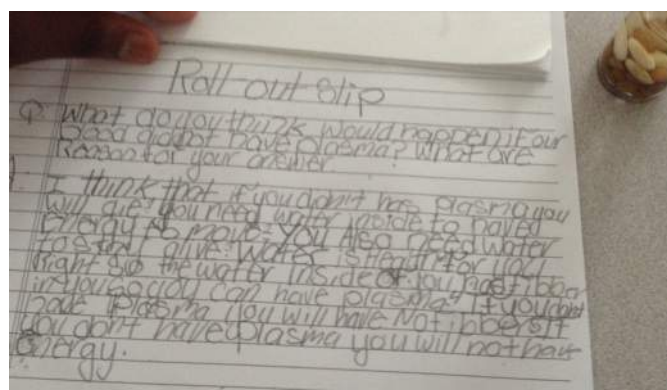 Roll-out Slip
Q: What do you think would happen if our
blood did not have plasma? What are
Reason for your answer.
I think that if you don't has plasma you
will die. you need water inside to haved
energy to move. You Also need water
to alive. Water is Heath for you
Right so the water inside of you has fibbar
in you so you can have plasma. If you don't
have Plasma you will have Not fibbers It
you don't have plasma you will not have
energy.